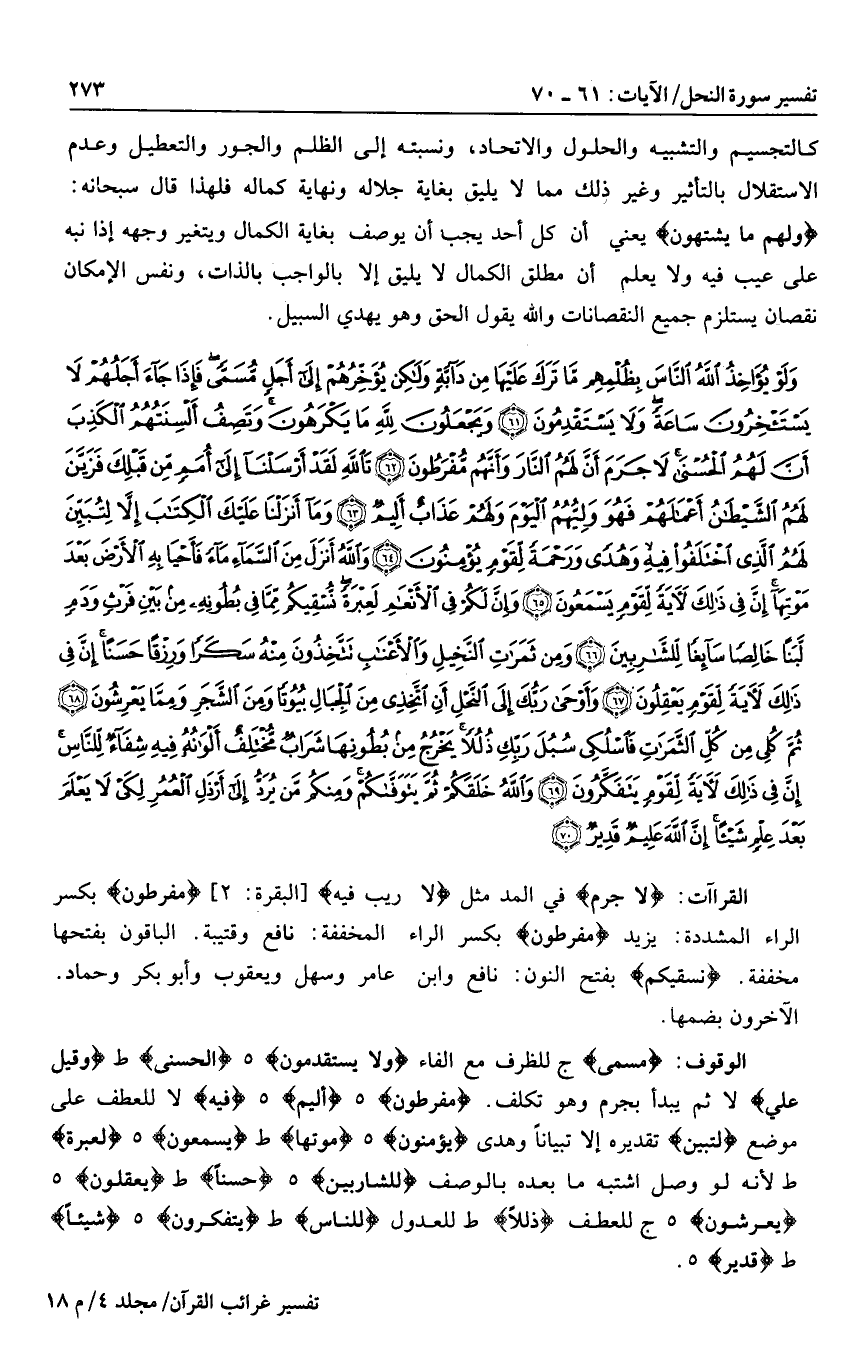 تفسير سورة النحل/ الآيات: ٦١ ـ ٧٠
٢٧٣
كالتجسيم والتشبيه والحلول والاتحاد، ونسبته إلى الظلم والجور والتعطيل وعدم
الاستقلال بالتأثير وغير ذلك مما لا يليق بغاية جلاله ونهاية كماله فلهذا قال سبحانه:
﴿ولهم ما يشتهون﴾ يعني أن كل أحد يجب أن يوصف بغاية الكمال ويتغير وجهه إذا نبه
على عيب فيه ولا يعلم أن مطلق الكمال لا يليق إلا بالواجب بالذات، ونفس الإمكان
نقصان يستلزم جميع النقصانات والله يقول الحق وهو يهدي السبيل.
وَلَوْ يُؤَاخِذُ ٱللَّهُ ٱلنَّاسَ بِظُلْمِهِم مَّا تَرَكَ عَلَيْهَا مِن دَآبَّةٍ وَلَٰكِن يُؤَخِّرُهُمْ إِلَىٰٓ أَجَلٍ مُّسَمًّىۖ فَإِذَا جَآءَ أَجَلُهُمْ لَا
يَسْتَـْٔخِرُونَ سَاعَةًۖ وَلَا يَسْتَقْدِمُونَ ﴿٦١﴾ وَيَجْعَلُونَ لِلَّهِ مَا يَكْرَهُونَۚ وَتَصِفُ أَلْسِنَتُهُمُ ٱلْكَذِبَ
أَنَّ لَهُمُ ٱلْحُسْنَىٰۚ لَا جَرَمَ أَنَّ لَهُمُ ٱلنَّارَ وَأَنَّهُم مُّفْرَطُونَ ﴿٦٢﴾ تَٱللَّهِ لَقَدْ أَرْسَلْنَآ إِلَىٰٓ أُمَمٍ مِّن قَبْلِكَ فَزَيَّنَ
لَهُمُ ٱلشَّيْطَٰنُ أَعْمَٰلَهُمْ فَهُوَ وَلِيُّهُمُ ٱلْيَوْمَ وَلَهُمْ عَذَابٌ أَلِيمٌ ﴿٦٣﴾ وَمَآ أَنزَلْنَا عَلَيْكَ ٱلْكِتَٰبَ إِلَّا لِتُبَيِّنَ
لَهُمُ ٱلَّذِى ٱخْتَلَفُوا۟ فِيهِۙ وَهُدًى وَرَحْمَةً لِّقَوْمٍ يُؤْمِنُونَ ﴿٦٤﴾ وَٱللَّهُ أَنزَلَ مِنَ ٱلسَّمَآءِ مَآءً فَأَحْيَا بِهِ ٱلْأَرْضَ بَعْدَ
مَوْتِهَآۚ إِنَّ فِى ذَٰلِكَ لَـَٔايَةً لِّقَوْمٍ يَسْمَعُونَ ﴿٦٥﴾ وَإِنَّ لَكُمْ فِى ٱلْأَنْعَٰمِ لَعِبْرَةًۖ نُّسْقِيكُم مِّمَّا فِى بُطُونِهِۦ مِنۢ بَيْنِ فَرْثٍ وَدَمٍ
لَّبَنًا خَالِصًا سَآئِغًا لِّلشَّٰرِبِينَ ﴿٦٦﴾ وَمِن ثَمَرَٰتِ ٱلنَّخِيلِ وَٱلْأَعْنَٰبِ تَتَّخِذُونَ مِنْهُ سَكَرًا وَرِزْقًا حَسَنًاۗ إِنَّ فِى
ذَٰلِكَ لَـَٔايَةً لِّقَوْمٍ يَعْقِلُونَ ﴿٦٧﴾ وَأَوْحَىٰ رَبُّكَ إِلَى ٱلنَّحْلِ أَنِ ٱتَّخِذِى مِنَ ٱلْجِبَالِ بُيُوتًا وَمِنَ ٱلشَّجَرِ وَمِمَّا يَعْرِشُونَ ﴿٦٨﴾
ثُمَّ كُلِى مِن كُلِّ ٱلثَّمَرَٰتِ فَٱسْلُكِى سُبُلَ رَبِّكِ ذُلُلًاۚ يَخْرُجُ مِنۢ بُطُونِهَا شَرَابٌ مُّخْتَلِفٌ أَلْوَٰنُهُۥ فِيهِ شِفَآءٌ لِّلنَّاسِۗ
إِنَّ فِى ذَٰلِكَ لَـَٔايَةً لِّقَوْمٍ يَتَفَكَّرُونَ ﴿٦٩﴾ وَٱللَّهُ خَلَقَكُمْ ثُمَّ يَتَوَفَّىٰكُمْۚ وَمِنكُم مَّن يُرَدُّ إِلَىٰٓ أَرْذَلِ ٱلْعُمُرِ لِكَىْ لَا يَعْلَمَ
بَعْدَ عِلْمٍ شَيْـًٔاۚ إِنَّ ٱللَّهَ عَلِيمٌ قَدِيرٌ ﴿٧٠﴾
القراآت: ﴿لا جرم﴾ في المد مثل ﴿لا ريب فيه﴾ [البقرة: ٢] ﴿مفرطون﴾ بكسر
الراء المشددة: يزيد ﴿مفرطون﴾ بكسر الراء المخففة: نافع وقتيبة. الباقون بفتحها
مخففة. ﴿نسقيكم﴾ بفتح النون: نافع وابن عامر وسهل ويعقوب وأبو بكر وحماد.
الآخرون بضمها.
الوقوف: ﴿مسمى﴾ ج للظرف مع الفاء ﴿ولا يستقدمون﴾ ٥ ﴿الحسنى﴾ ط ﴿وقيل
علي﴾ لا ثم يبدأ بجرم وهو تكلف. ﴿مفرطون﴾ ٥ ﴿أليم﴾ ٥ ﴿فيه﴾ لا للعطف على
موضع ﴿لتبين﴾ تقديره إلا تبياناً وهدى ﴿يؤمنون﴾ ٥ ﴿موتها﴾ ط ﴿يسمعون﴾ ٥ ﴿لعبرة﴾
ط لأنه لو وصل اشتبه ما بعده بالوصف ﴿للشاربين﴾ ٥ ﴿حسناً﴾ ط ﴿يعقلون﴾ ٥
﴿يعرشون﴾ ٥ ج للعطف ﴿ذللاً﴾ ط للعدول ﴿للناس﴾ ط ﴿يتفكرون﴾ ٥ ﴿شيئاً﴾
ط ﴿قدير﴾ ٥.
تفسير غرائب القرآن/ مجلد ٤/ م ١٨